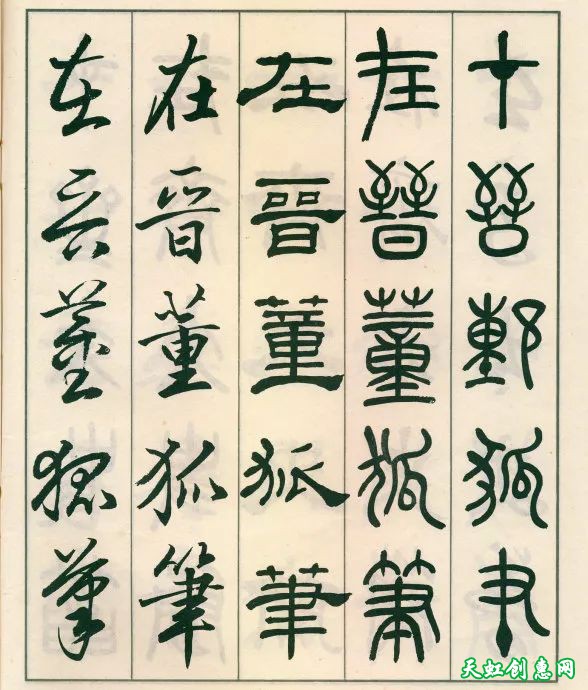 在晉董狐筆
在晉董狐筆
在晉董狐筆
在晉董狐筆
在晉董狐筆
天虹创惠网